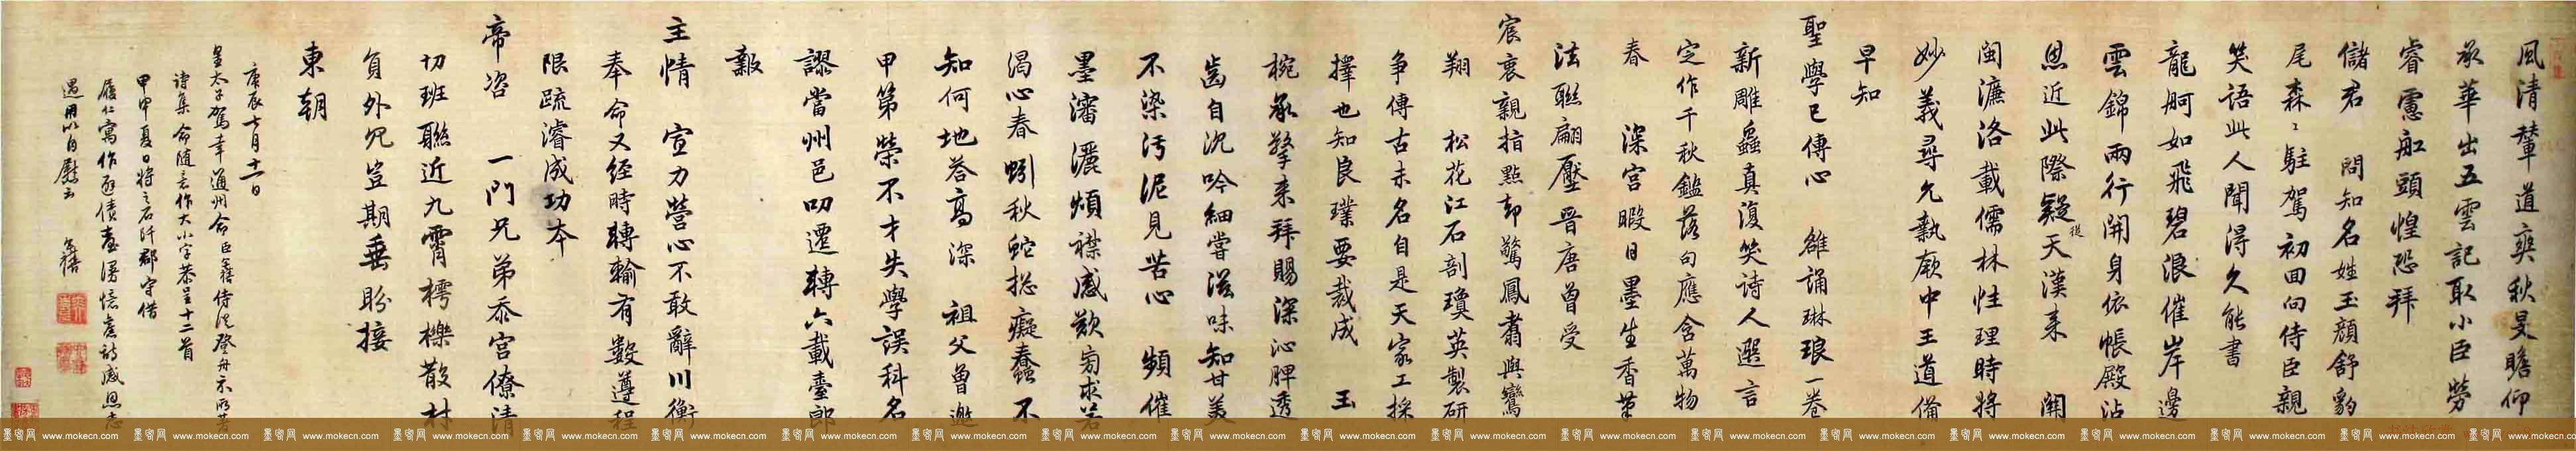 風清輦道爽秋旻瞻仰
承華出五雲記取小臣勞
睿慮船頭惶恐拜
儲君 問知名姓玉顏舒豹
尾森〻駐駕初回向侍臣親
笑語此人聞得久能書
龍舸如飛碧浪催岸邊
雲錦兩行開身依帳殿沾
恩近此際疑從天漢來 關
閩濂洛載儒林性理時將
妙義尋允執厥中王道備
早知
聖學已傳心 雒誦琳琅一卷
新雕蟲真復笑詩人選言
定作千秋鑑落句應含萬物
春 深宮暇日墨生香筆
法聯翩壓晉唐曾受
宸衷親指點却驚鳳翥與鸞
翔 松花江石剖瓊英製研
爭傳古未名自是天家工採
擇也知良璞要裁成 玉
椀承擎來拜賜深沁脾透
齒自沉吟細嘗滋味知甘美
不染污泥見苦心 頻催
墨瀋灑煩襟感歎旁求若
渴心春蚓秋蛇捴癡蠢不
知何地答高深 祖父曾邀
甲第榮不才失學誤科名
謬當州邑叨遷轉六載臺郎
報
主情 宣力營心不敢辭川衡
奉命又經時轉輸有數遵程
限疏濬成功本
帝咨 一門兄弟忝宮僚清
切班聯近九霄樗櫟散材
負外兄豈期垂盼接
東朝
庚辰七月十一日
皇太子駕幸通州命臣 侍從登舟示所著
詩集命隨意作大小字恭呈十二首
甲申夏日將之石阡郡守借
履仁寓作 債畫漫憶舊詩感恩志
遇用以自慰云